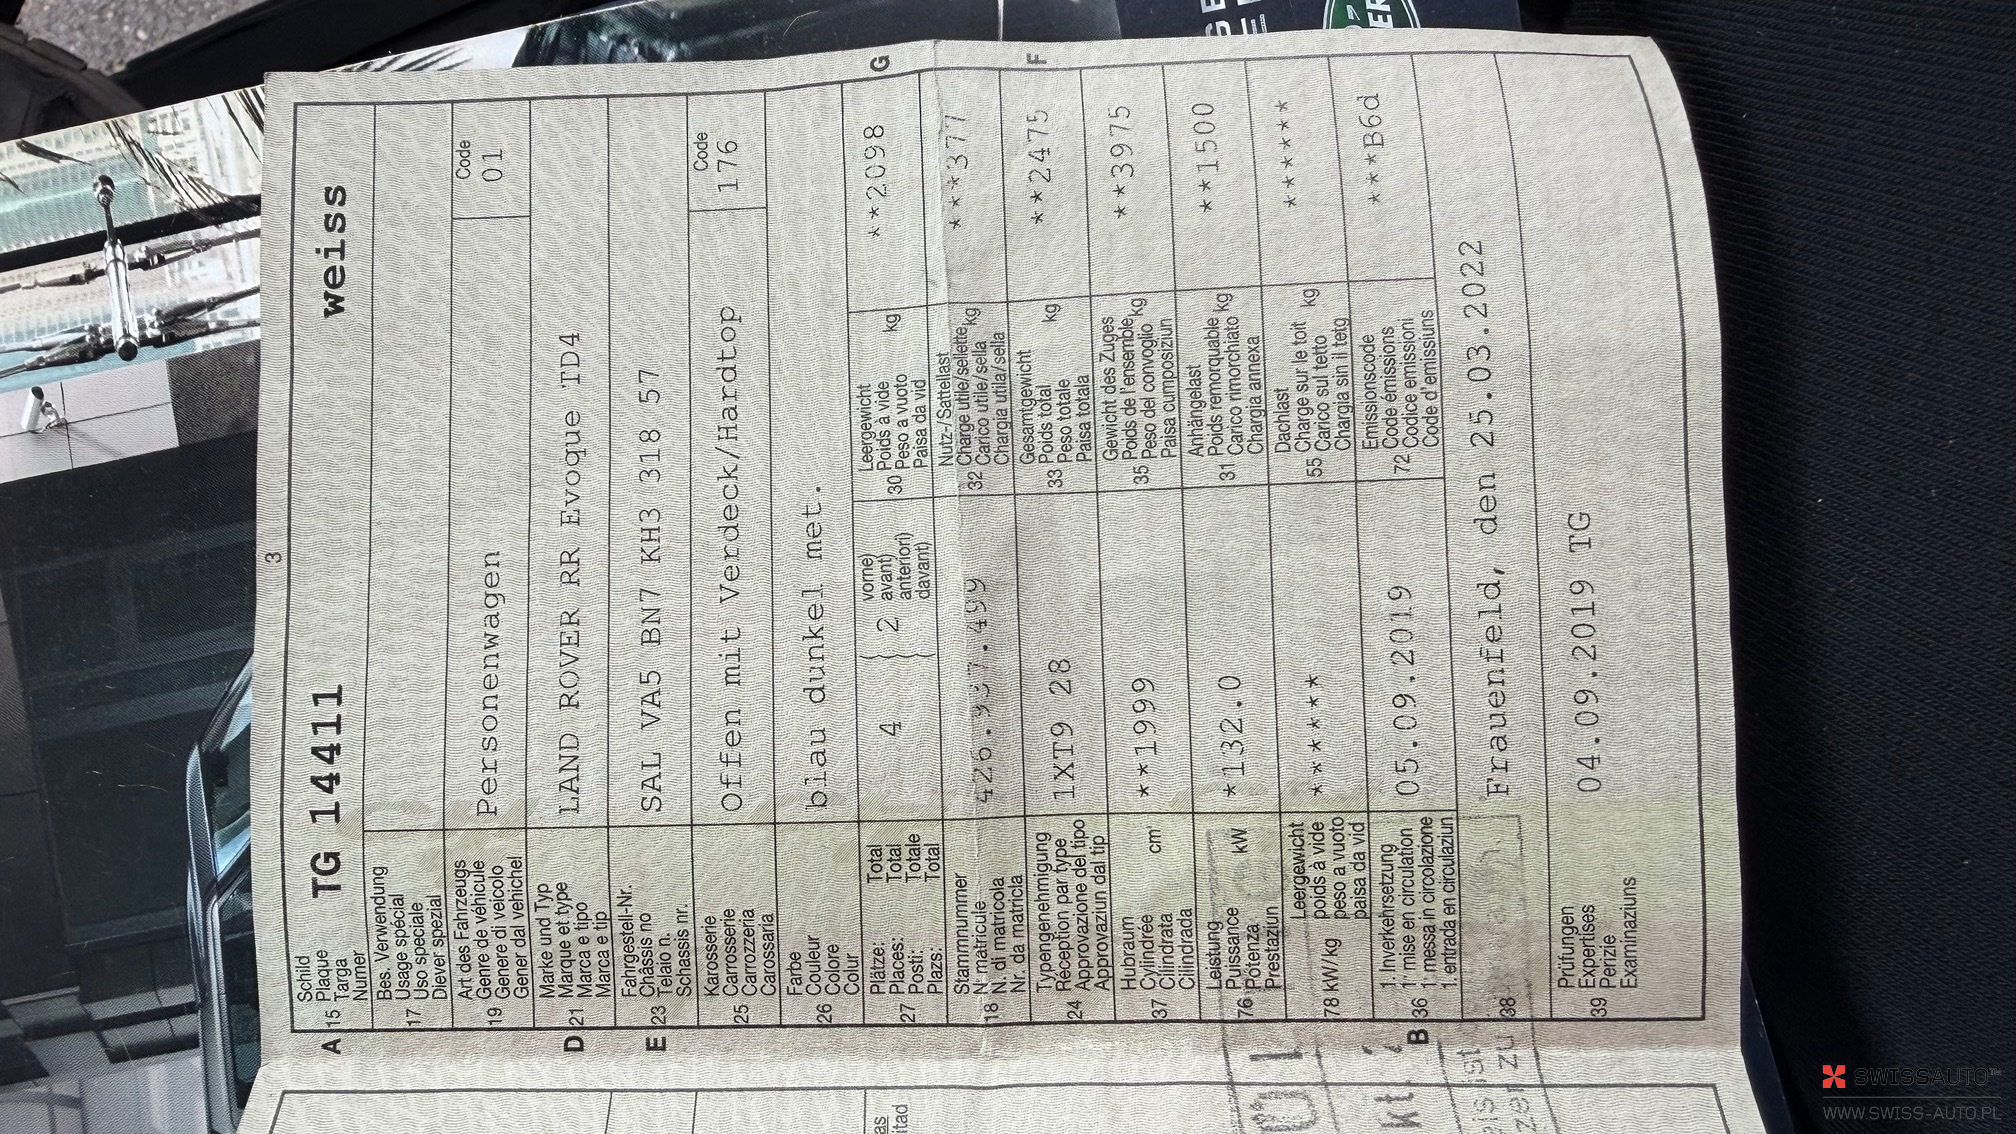 3
A 15 Schild
Plaque
Targa
Numer
TG 14411 weiss
17 Bes. Verwendung
Usage spécial
Uso speciale
Diever spezial
19 Art des Fahrzeugs
Genre de véhicule
Genere di veicolo
Gener dal vehichel
Personenwagen
Code
01
D 21 Marke und Typ
Marque et type
Marca e tipo
Marca e tip
LAND ROVER RR Evoque TD4
E 23 Fahrgestell-Nr.
Châssis no
Telaio n.
Schassis nr.
SAL VA5 BN7 KH3 318 57
25 Karosserie
Carrosserie
Carrozzeria
Carossaria
Offen mit Verdeck/Hardtop
Code
176
26 Farbe
Couleur
Colore
Colur
blau dunkel met.
27 Plätze: Total
Places: Total
Posti: Totale
Plazs: Total
4 { 2 } vorne)
avant)
anteriori)
davant)
30 Leergewicht
Poids à vide
Peso a vuoto
Paisa da vid
kg
**2098
G
18 Stammnummer
N° matricule
N. di matricola
Nr. da matricla
426.937.499
32 Nutz-/Sattellast
Charge utile/sellette
Carico utile/sella
Chargia utila/sella
kg
***377
24 Typengenehmigung
Réception par type
Approvazione del tipo
Approvaziun dal tip
1XT9 28
33 Gesamtgewicht
Poids total
Peso totale
Paisa totala
kg
**2475
F
37 Hubraum
Cylindrée
Cilindrata
Cilindrada
cm³
**1999
35 Gewicht des Zuges
Poids de l'ensemble
Peso del convoglio
Paisa cumposiziun
kg
**3975
76 Leistung
Puissance
Potenza
Prestaziun
kW
*132.0
31 Anhängelast
Poids remorquable
Carico rimorchiato
Chargia annexa
kg
**1500
78 kW/kg Leergewicht
poids à vide
peso a vuoto
paisa da vid
******
55 Dachlast
Charge sur le toit
Carico sul tetto
Chargia sin il tetg
kg
******
B 36 1. Inverkehrsetzung
1re mise en circulation
1a messa in circolazione
1. entrada en circulaziun
05.09.2019
72 Emissionscode
Code émissions
Codice emissioni
Code d'emissiuns
***B6d
38
Frauenfeld, den 25.03.2022
39 Prüfungen
Expertises
Perizie
Examinaziuns
04.09.2019 TG
SWISSAUTO
WWW.SWISS-AUTO.PL